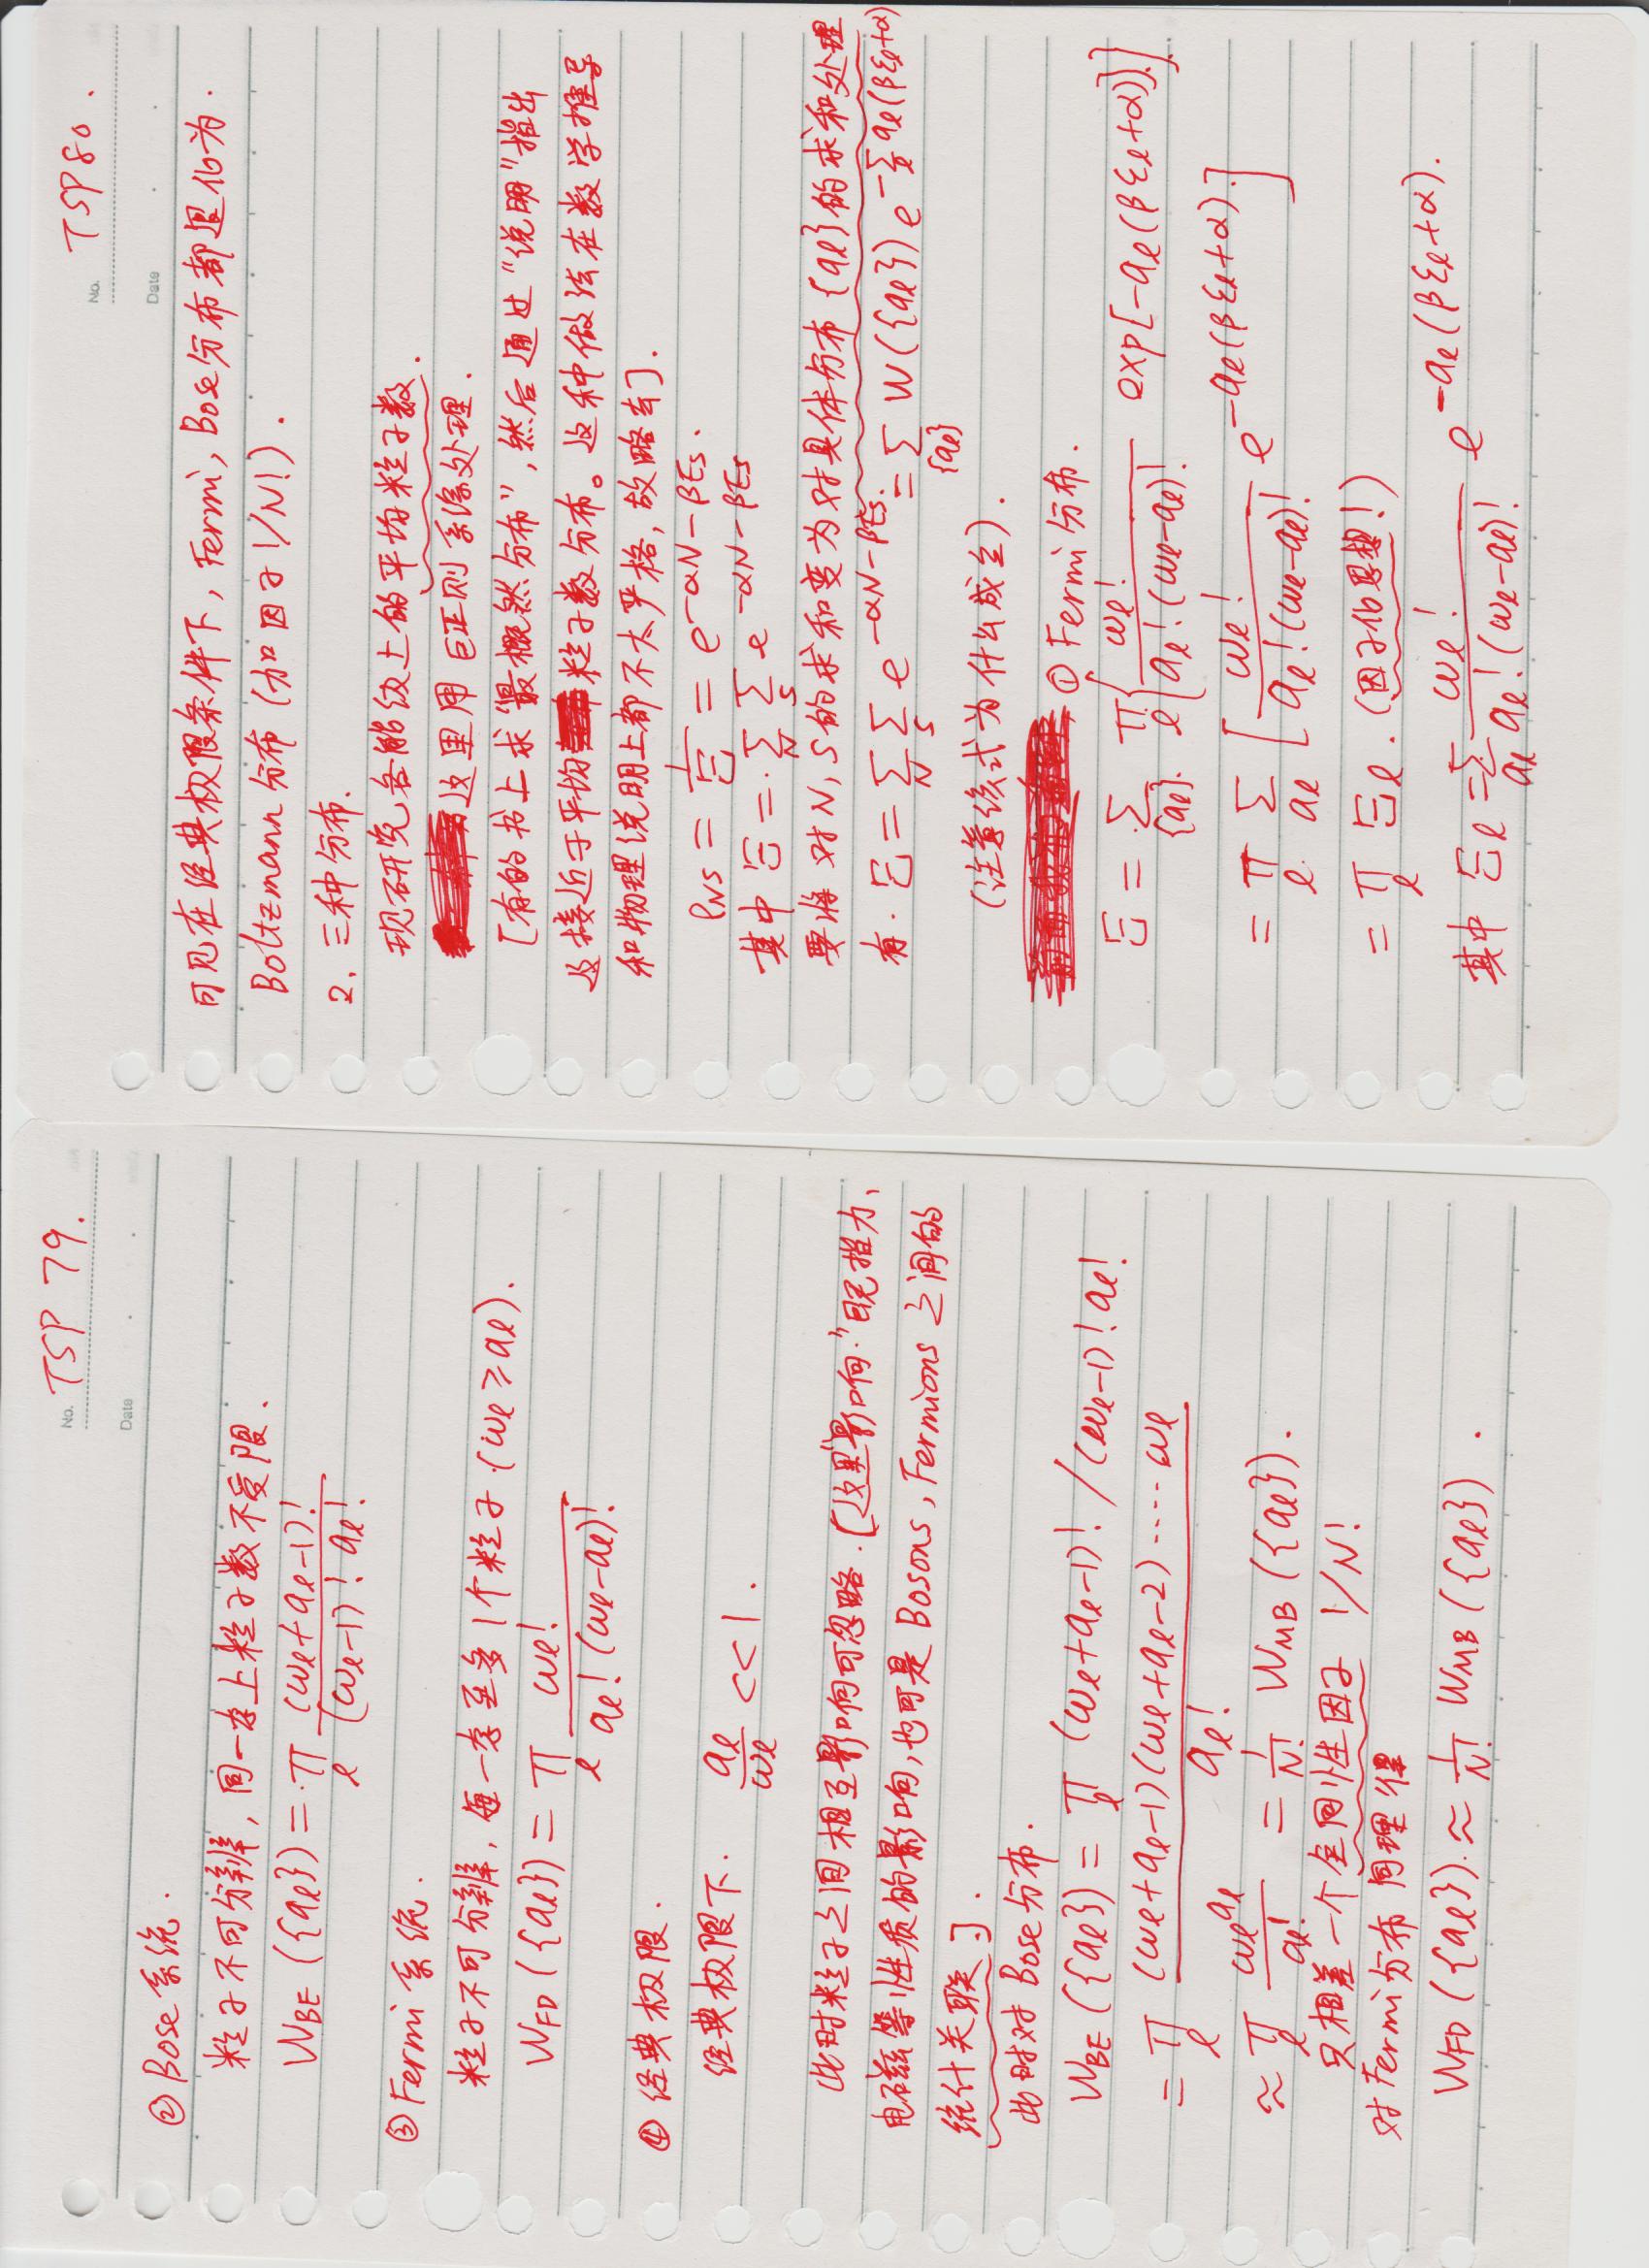 No. TSP 79.
Date
② Bose 系统.
粒子不可分辨, 同一态上粒子数不受限.
W_BE ({a_l}) = ∏_l (ω_l+a_l-1)! / (ω_l-1)! a_l!
③ Fermi 系统.
粒子不可分辨, 每一态至多1个粒子 (ω_l ≥ a_l).
W_FD ({a_l}) = ∏_l ω_l! / a_l! (ω_l-a_l)!
④ 经典极限.
经典极限下. a_l/ω_l << 1.
此时粒子之间相互影响可忽略. [这里"影响"既指力、
电磁等性质的影响, 也可是 Bosons, Fermions 之间的
统计关联].
此时对 Bose 分布.
W_BE ({a_l}) = ∏_l (ω_l+a_l-1)! / (ω_l-1)! a_l!
= ∏_l (ω_l+a_l-1)(ω_l+a_l-2)····ω_l / a_l!
≈ ∏_l ω_l^{a_l} / a_l! = 1/N! W_MB ({a_l}).
只相差一个全同性因子 1/N!
对 Fermi 分布 同理得
W_FD ({a_l}) ≈ 1/N! W_MB ({a_l}).
No. TSP 80.
Date
可见在经典极限条件下, Fermi, Bose 分布都退化为.
Boltzmann 分布 (加因子 1/N!).
2. 三种分布.
现研究各能级上的平均粒子数.
这里用巨正则系综处理.
[有的书上求"最概然分布", 然后通过"说明"指出
这接近于平均粒子数分布。这种做法在数学推导
和物理说明上都不太严格, 故略去].
ρ_NS = 1/Ξ = e^{-αN-βE_s}.
其中 Ξ = Σ_N Σ_S e^{-αN-βE_s}
要将对 N, S 的求和变为对具体分布 {a_l} 的求和处理
有. Ξ = Σ_N Σ_S e^{-αN-βE_s} = Σ_{a_l} W({a_l}) e^{-Σ_l a_l(βε_l+α)}
(注意该式为什么成立).
① Fermi 分布.
Ξ = Σ_{a_l} ∏_l { ω_l! / a_l! (ω_l-a_l)! exp[-a_l(βε_l+α)] }
= ∏_l Σ_{a_l} [ ω_l! / a_l! (ω_l-a_l)! e^{-a_l(βε_l+α)} ]
= ∏_l Ξ_l. (因子化思想!)
其中 Ξ_l = Σ_{a_l} ω_l! / a_l! (ω_l-a_l)! e^{-a_l(βε_l+α)}.